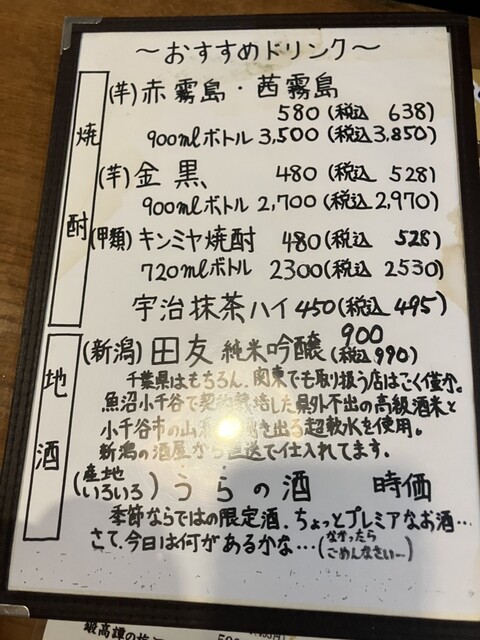 ～おすすめドリンク～
焼酎
(芋)赤霧島・茜霧島
580(税込 638)
900mlボトル 3,500(税込3,850)
(芋)金黒
480(税込 528)
900mlボトル 2,700(税込2,970)
(甲類)キンミヤ焼酎 480(税込 528)
720mlボトル 2300(税込 2530)
宇治抹茶ハイ 450(税込 495)
地酒
(新潟)田友 純米吟醸 900(税込990)
千葉県はもちろん、関東でも取り扱う店はごく僅か。
魚沼小千谷で契約栽培した県外不出の高級酒米と
小千谷市の山 き出る超軟水を使用。
新潟の酒屋から直送で仕入れてます。
(産地いろいろ)うらの酒 時価
季節ならではの限定酒、ちょっとプレミアなお酒…
さて、今日は何があるかな…(なかったらごめんなさい…)